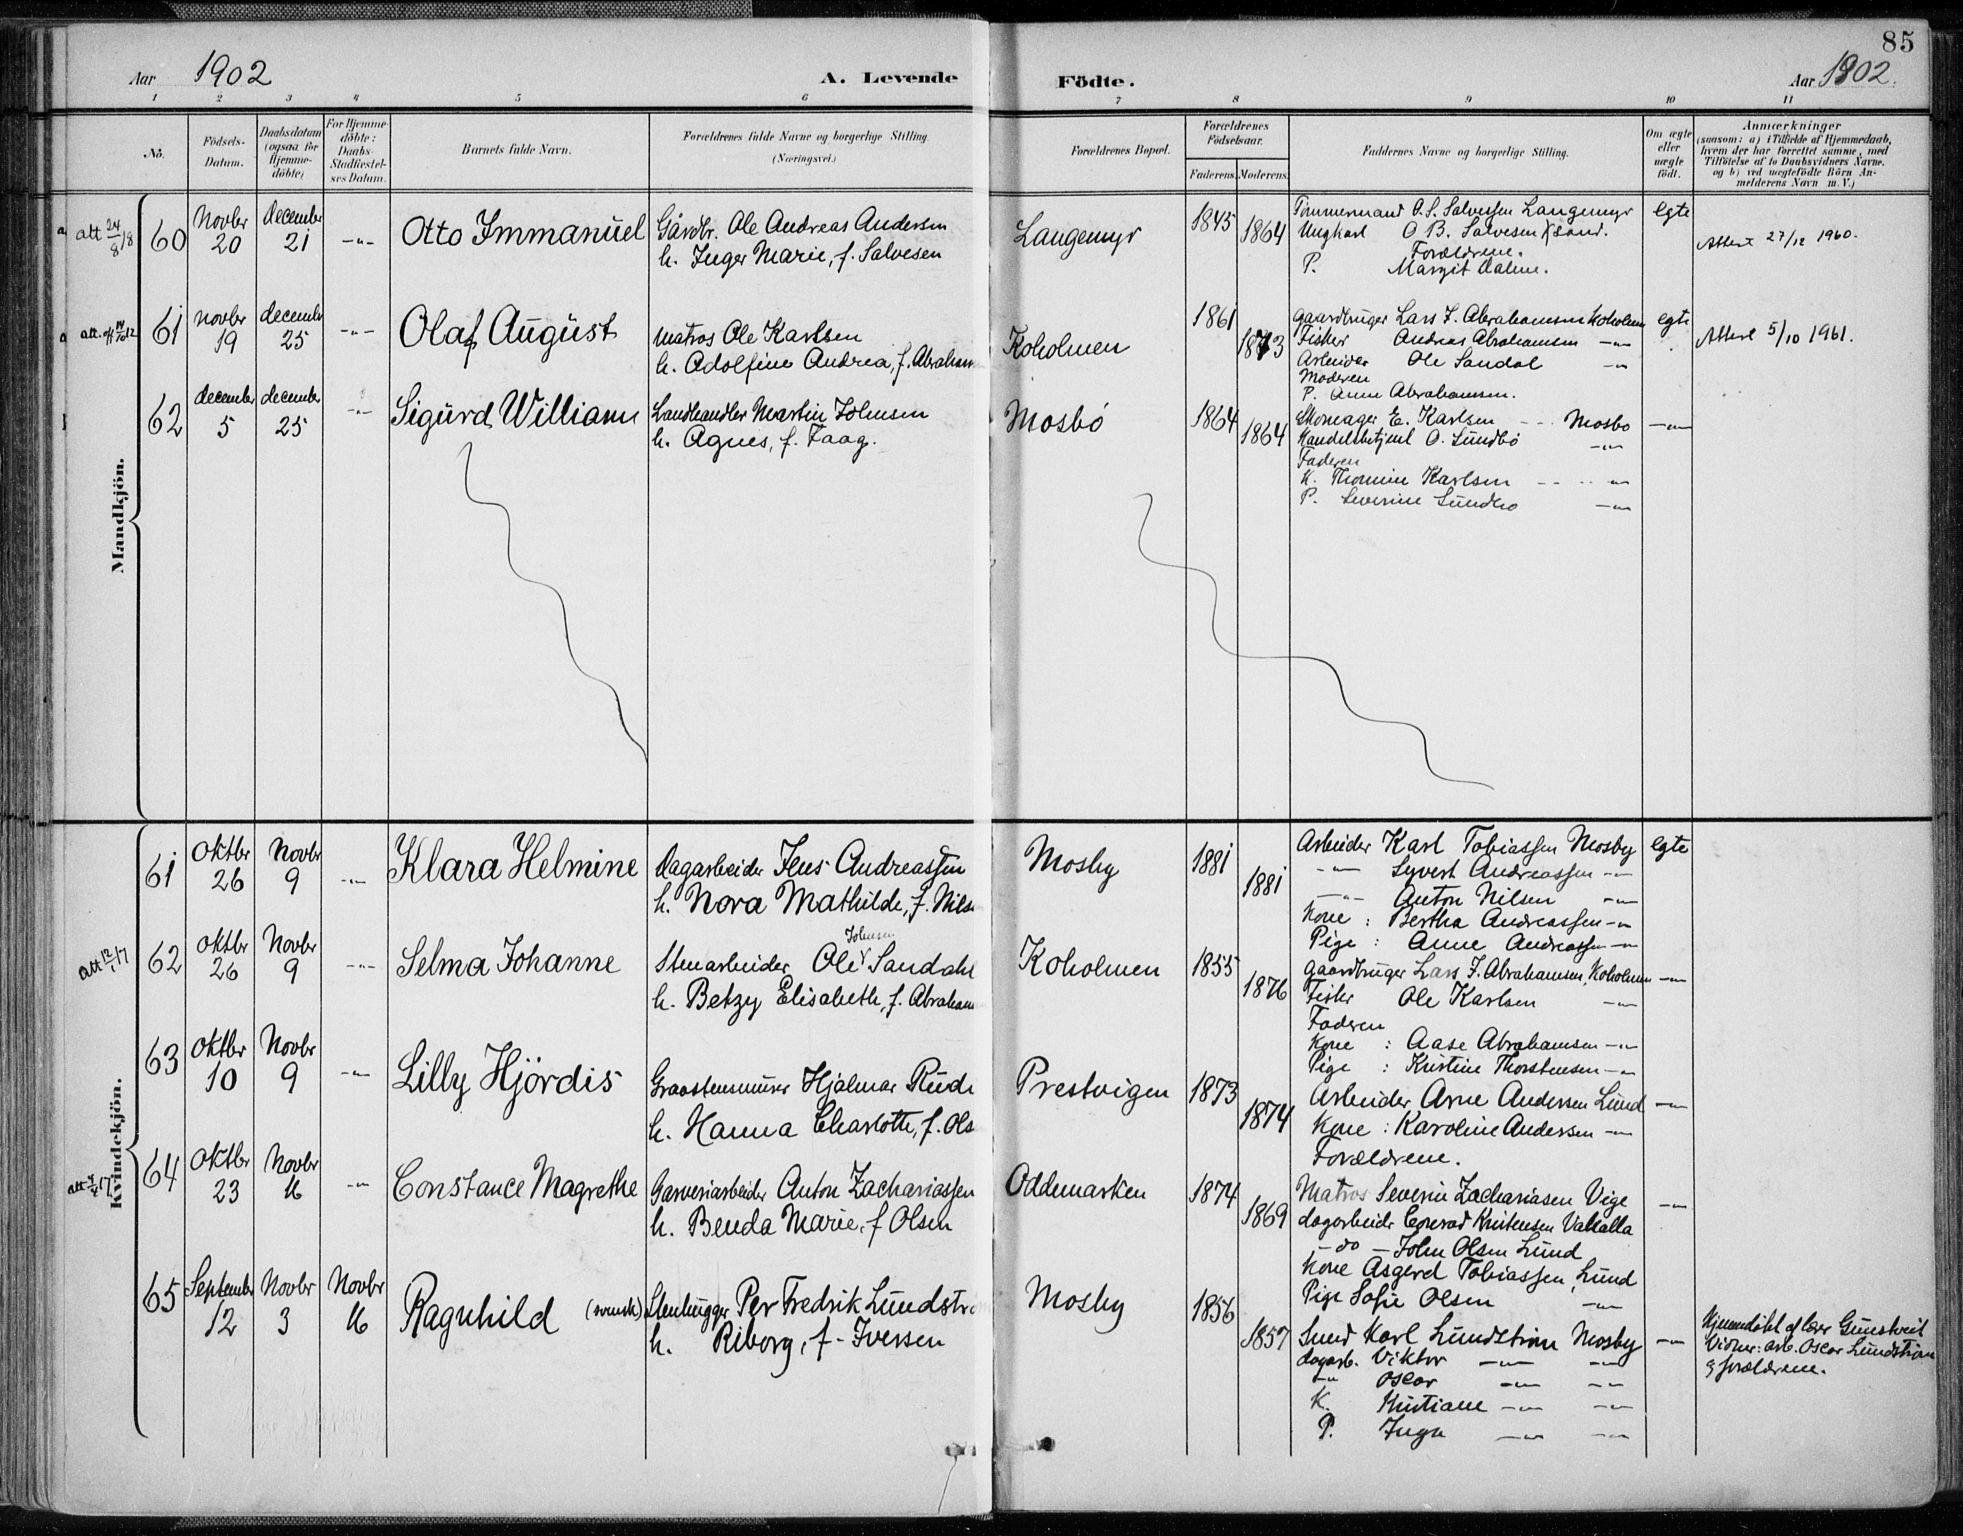 85
Aar 1902 A. Levende Födte. Aar 1902.
1 2 3 4 5 6 7 8 9 10 11
No.
Födsels-
Datum.
Daabsdatum
(ogsaa for
Hjemme-
döbte)
For Hjemme-
döbte:
Daabs-
Stadfæstel-
ses Datum.
Barnets fulde Navn.
Forældrenes fulde Navne og borgerlige Stilling.
(Næringsvei.)
Forældrenes Bopæl.
Forældrenes
Födselsaar.
Faderens. Moderens.
Faddernes Navne og borgerlige Stilling.
Om ægte
eller
uægte
födt.
Anmærkninger
(saasom: a) i Tilfælde af Hjemmedaab,
hvem der har forrettet samme, med
Tilföielse af to Daabsvidners Navne,
og b) ved uægtefödte Börn An-
melderens Navn m. V.)
Mandkjön.
att 24/8 18
60
Novbr
20
december
21
-"-
Otto Immanuel
Gårdbr. Ole Andreas Andersen
h. Inger Marie, f. Salvesen
Langemyr
1845
1864
Tömmermand O.S. Salvessen Langemyr
Ungkarl O B. Salvesen Ksand.
Forældrene.
P. Margit Dalene.
egte
Attest 27/12 1960.
61
Novbr
19
december
25
-"-
Olaf August
Matros Ole Karlsen
h. Adolfine Andrea, f. Abraham
Koholmen
1861
1873
gaardbruger Lars J. Abrahamsen Koholmen
Fisker Andreas Abrahamsen -"-
Arbeider Ole Sandal -"-
Moderen
P. Anne Abrahamsen.
egte
Attest 5/10 1961.
62
december
5
december
25
-"-
Sigurd William
Landhandler Martin Johnsen
h. Agnes, f. Faag.
Mosbö
1864
1864
Skomager E. Karlsen - - - Mosbo
Handelsbetjent O. Lundbö -"-
Faderen
K. Thomine Karlsen - - - -"-
P. Severine Lundbo -"-
-"-
Kvindekjön.
61
Oktbr
26
Novbr
9
-"-
Klara Helmine
Dagarbeider Jens Andreassen
h. Nora Mathilde, f. Nils
Mosby
1881
1881
Arbeider Karl Tobiassen Mosby
-"- Syvert Andreassen -"-
-"- Anton Nilsen -"-
Kone : Bertha Andreassen -"-
Pige : Anne Andreassen -"-
egte
att 12/1 17
62
Oktbr
26
Novbr
9
-"-
Selma Johanne
Johnsen
Stenarbeider Ole Sandal
h. Betzy Elisabeth, f. Abraham
Koholmen
1855
1876
gaardbruger Lars J. Abrahamsen, Koholmen
Fisker Ole Karlsen -"-
Faderen
Kone : Aase Abrahamsen -"-
Pige : Kristine Thorstensen -"-
-"-
63
Oktbr
10
Novbr
9
-"-
Lilly Hjördis
Graastensmurer Hjalmar Rud
h. Hanna Charlotte, f. Ols
Prestvigen
1873
1874
Arbeider Arne Andersen Lund
Kone : Karoline Andersen -"-
Forældrene.
-"-
64
Oktbr
23
Novbr
16
-"-
Constance Magrethe
Garveriarbeider Anton Zachariassen
h. Benda Marie, f Olsen
Oddemarken
1874
1869
Matros Severin Zachariasen Vige
dagarbeidr Conrad Kristensen Valhalla
- do - John Olsen Lund
Kone Asgerd Tobiassen, Lund
Pige Sofie Olsen -"-
-"-
65
September
12
Novbr
3
Novbr
16
Ragnhild
(svensk) Stenhugger Per Fredrik Lundströ
h. Riborg, f. Iversen
Mosby
1856
1857
Smed Karl Lundström Mosby
dagarb. Viktor -"- -"-
-"- Oscar -"- -"-
K. Kristiane -"- -"-
P. Inga -"- -"-
-"-
Hjemmedöbt af lær Gunstveit
Vidner: arb. Oscar Lundström
og forældrene.